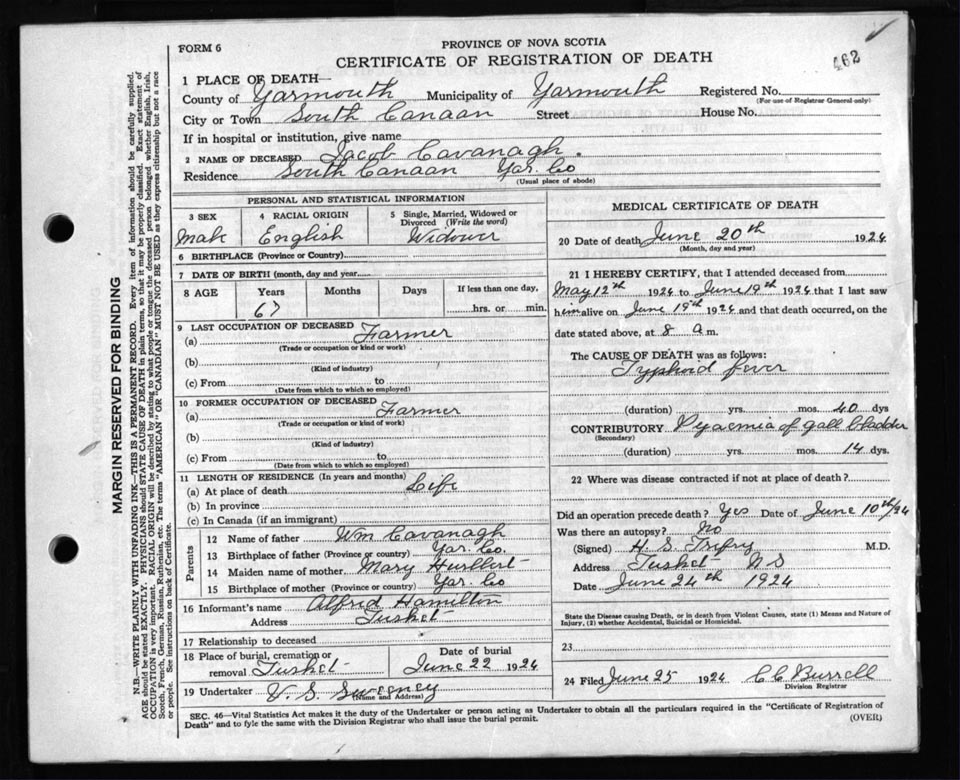 FORM 6
PROVINCE OF NOVA SCOTIA
CERTIFICATE OF REGISTRATION OF DEATH
462
1 PLACE OF DEATH—
County of Yarmouth Municipality of Yarmouth Registered No.
(For use of Registrar General only)
City or Town South Canaan Street House No.
If in hospital or institution, give name
2 NAME OF DECEASED Jacob Cavanagh.
Residence South Canaan Yar. Co
(Usual place of abode)
PERSONAL AND STATISTICAL INFORMATION
3 SEX 4 RACIAL ORIGIN 5 Single, Married, Widowed or Divorced (Write the word)
Male English Widower
6 BIRTHPLACE (Province or Country)
7 DATE OF BIRTH (month, day and year)
8 AGE Years Months Days If less than one day,
67 hrs. or min.
9 LAST OCCUPATION OF DECEASED
(a) Farmer
(Trade or occupation or kind or work)
(b)
(Kind of industry)
(c) From to
(Date from which to which so employed)
10 FORMER OCCUPATION OF DECEASED
(a) Farmer
(Trade or occupation or kind of work)
(b)
(Kind of industry)
(c) From to
(Date from which to which so employed)
11 LENGTH OF RESIDENCE (In years and months)
(a) At place of death Life
(b) In province
(c) In Canada (if an immigrant)
Parents
12 Name of father Wm Cavanagh
13 Birthplace of father (Province or country) Yar. Co.
14 Maiden name of mother Mary Hurlbert
15 Birthplace of mother (Province or country) Yar Co
16 Informant's name Alfred Hamilton
Address Tusket
17 Relationship to deceased
18 Place of burial, cremation or removal Tusket
Date of burial
June 22 1924
19 Undertaker V. S. Sweeney
(Name and Address)
MEDICAL CERTIFICATE OF DEATH
20 Date of death June 20th 1924
(Month, day and year)
21 I HEREBY CERTIFY, that I attended deceased from
May 12th 1924 to June 19th 1924 that I last saw
him alive on June 19th 1924 and that death occurred, on the
date stated above, at 8 a m.
The CAUSE OF DEATH was as follows:
Typhoid fever
(duration) yrs. mos. 40 dys
CONTRIBUTORY Pyaemia of gall bladder
(Secondary)
(duration) yrs. mos. 14 dys.
22 Where was disease contracted if not at place of death?
Did an operation precede death? Yes Date of June 10th/24
Was there an autopsy? No
(Signed) H. S. Trefry M.D.
Address Tusket N S
Date June 24th 1924
State the Disease causing Death, or in death from Violent Causes, state (1) Means and Nature of
Injury, (2) whether Accidental, Suicidal or Homicidal.
23
24 Filed June 25 1924 C C Burrell
Division Registrar
SEC. 46—Vital Statistics Act makes it the duty of the Undertaker or person acting as Undertaker to obtain all the particulars required in the "Certificate of Registration of
Death" and to fyle the same with the Division Registrar who shall issue the burial permit.
(OVER)
MARGIN RESERVED FOR BINDING
N.B.—WRITE PLAINLY WITH UNFADING INK—THIS IS A PERMANENT RECORD. Every item of information should be carefully supplied.
AGE should be stated EXACTLY. PHYSICIANS should STATE CAUSE OF DEATH in plain terms, so that it may be properly classified. Exact statement of
OCCUPATION is very important. RACIAL ORIGIN will be described by stating to what people or tongue the deceased person belonged whether English, Irish,
Scotch, French, German, Russian, Ruthenian, etc. The terms "AMERICAN" OR "CANADIAN" MUST NOT BE USED as they express citizenship but not a race
or people. See instructions on back of Certificate.